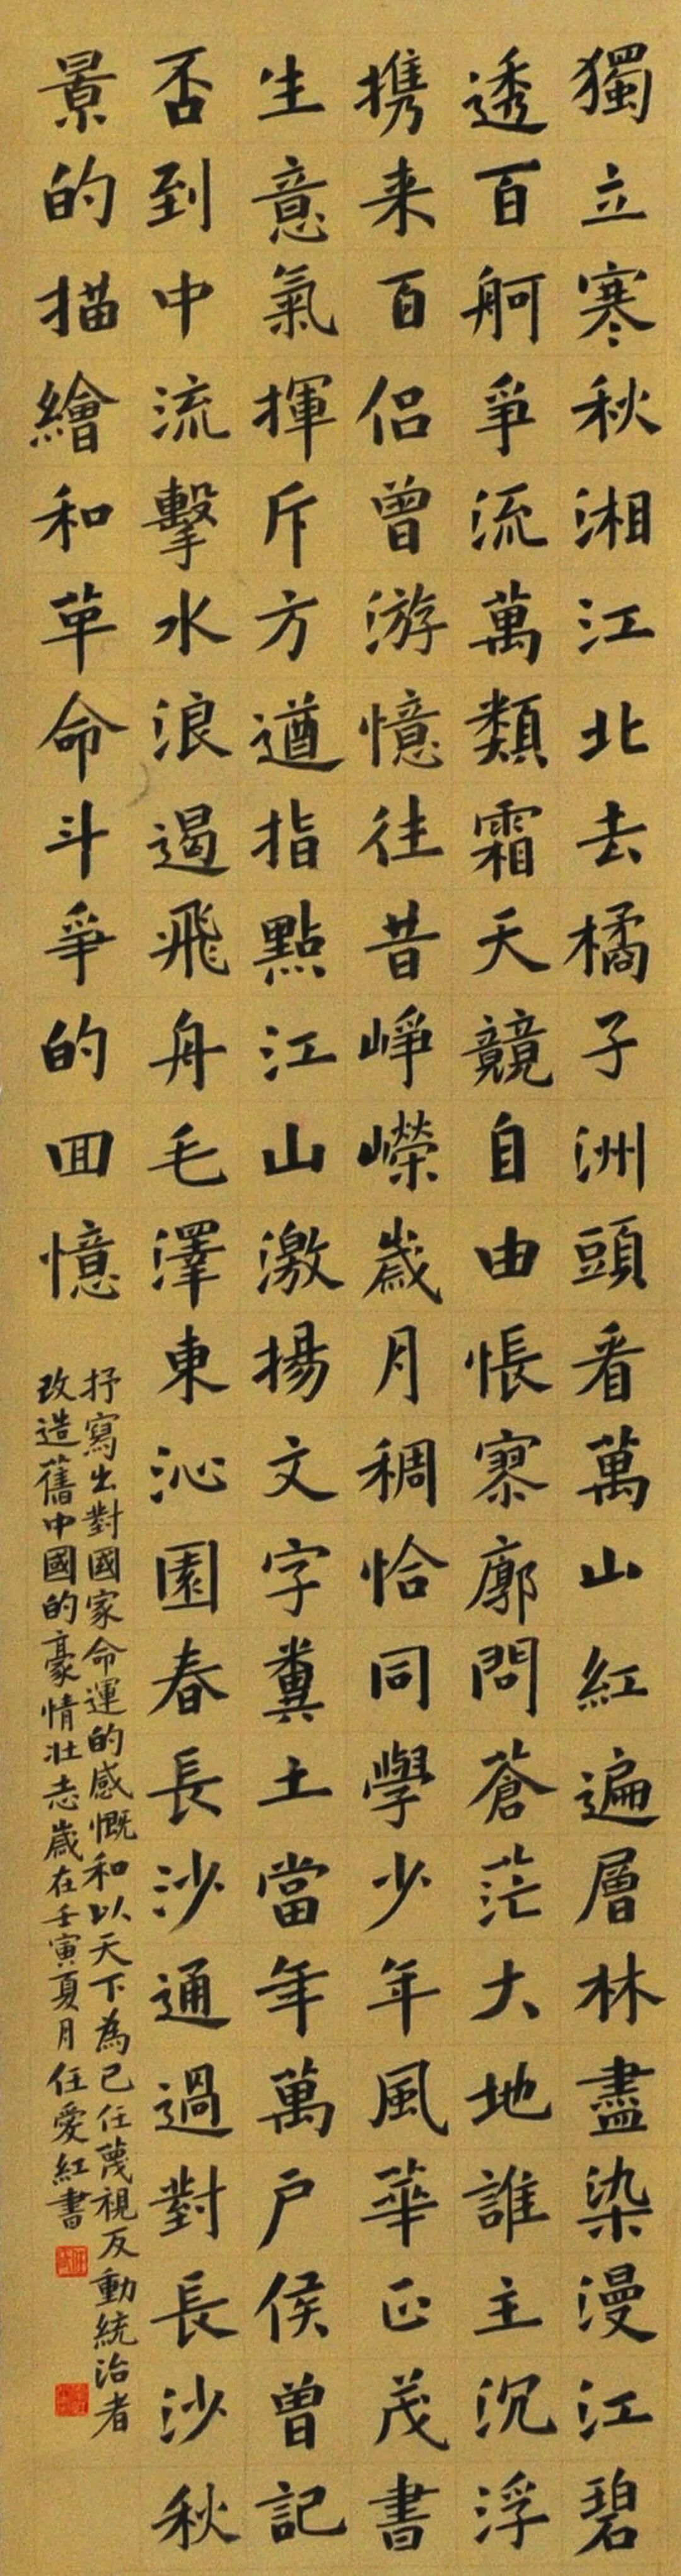 獨立寒秋湘江北去橘子洲頭看萬山紅遍層林盡染漫江碧
透百舸爭流萬類霜天競自由悵寥廓問蒼茫大地誰主沉浮
携来百侣曾游憶往昔崢嶸歲月稠恰同學少年風華正茂書
生意氣揮斥方遒指點江山激揚文字糞土當年萬户侯曾記
否到中流擊水浪遏飛舟毛澤東沁園春長沙通過對長沙秋
景的描繪和革命斗爭的囬憶
抒寫出對國家命運的感慨和以天下為己任蔑視反動統治者
改造舊中國的豪情壮志歲在壬寅夏月任愛紅書